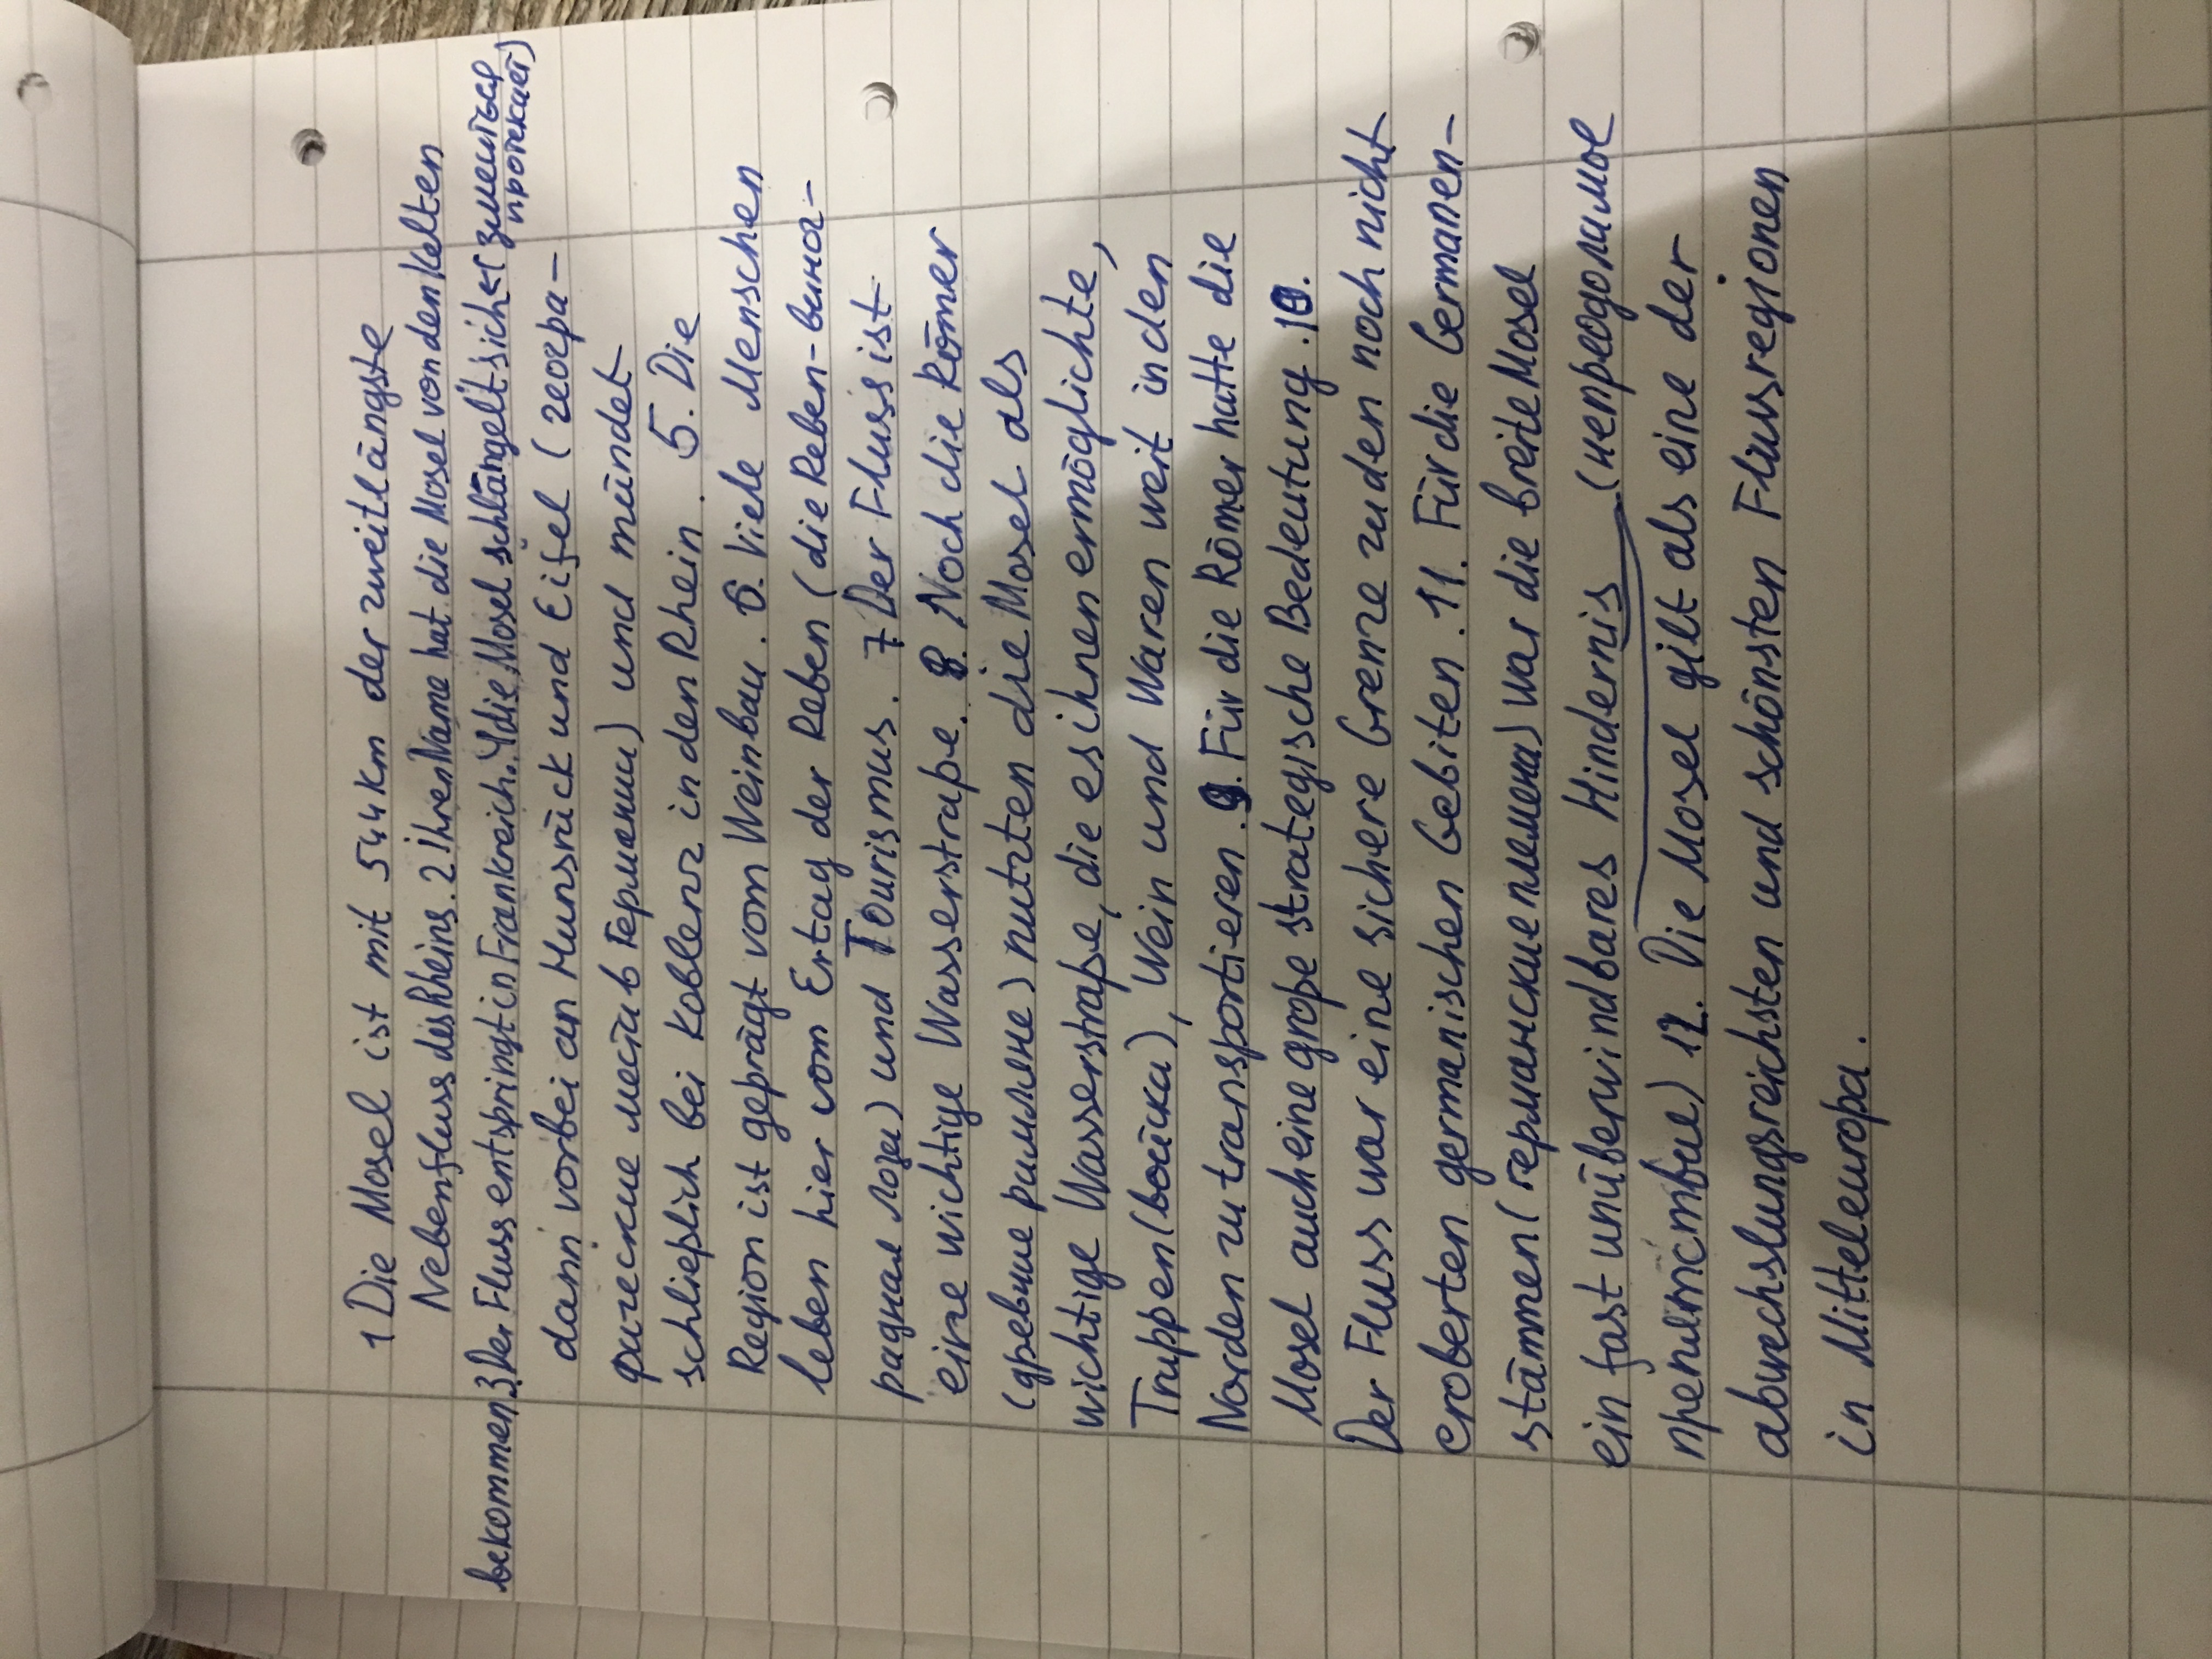 1 Die Mosel ist mit 544 km der zweitlängste
Nebenfluss des Rheins. 2 Ihren Name hat die Mosel von den Kelten
bekommen 3. Der Fluss entspringt in Frankreich. 4 die Mosel schlängelt sich (змеиться
протекает)
dann vorbei an Hunsrück und Eifel (геогра-
фические места в Германии) und mündet
schließlich bei Koblenz in den Rhein. 5. Die
Region ist geprägt vom Weinbau. 6. Viele Menschen
leben hier vom Ertag der Reben (die Reben-виног-
радная лоза) und Tourismus. 7 Der Fluss ist
eine wichtige Wasserstraße. 8. Noch die Römer
(древние римляне) nutzten die Mosel als
wichtige Wasserstraße, die es ihnen ermöglichte,
Truppen (войска), Wein und Waren weit in den
Norden zu transportieren. 9. Für die Römer hatte die
Mosel auch eine große strategische Bedeutung. 10.
Der Fluss war eine sichere Grenze zu den noch nicht
eroberten germanischen Gebiten. 11. Für die Germanen-
stämmen (германские племена) war die breite Mosel
ein fast unüberwindbares Hindernis (непреодолимое
препятствие) 12. Die Mosel gilt als eine der
abwechslungsreichsten und schönsten Flussregionen
in Mitteleuropa.